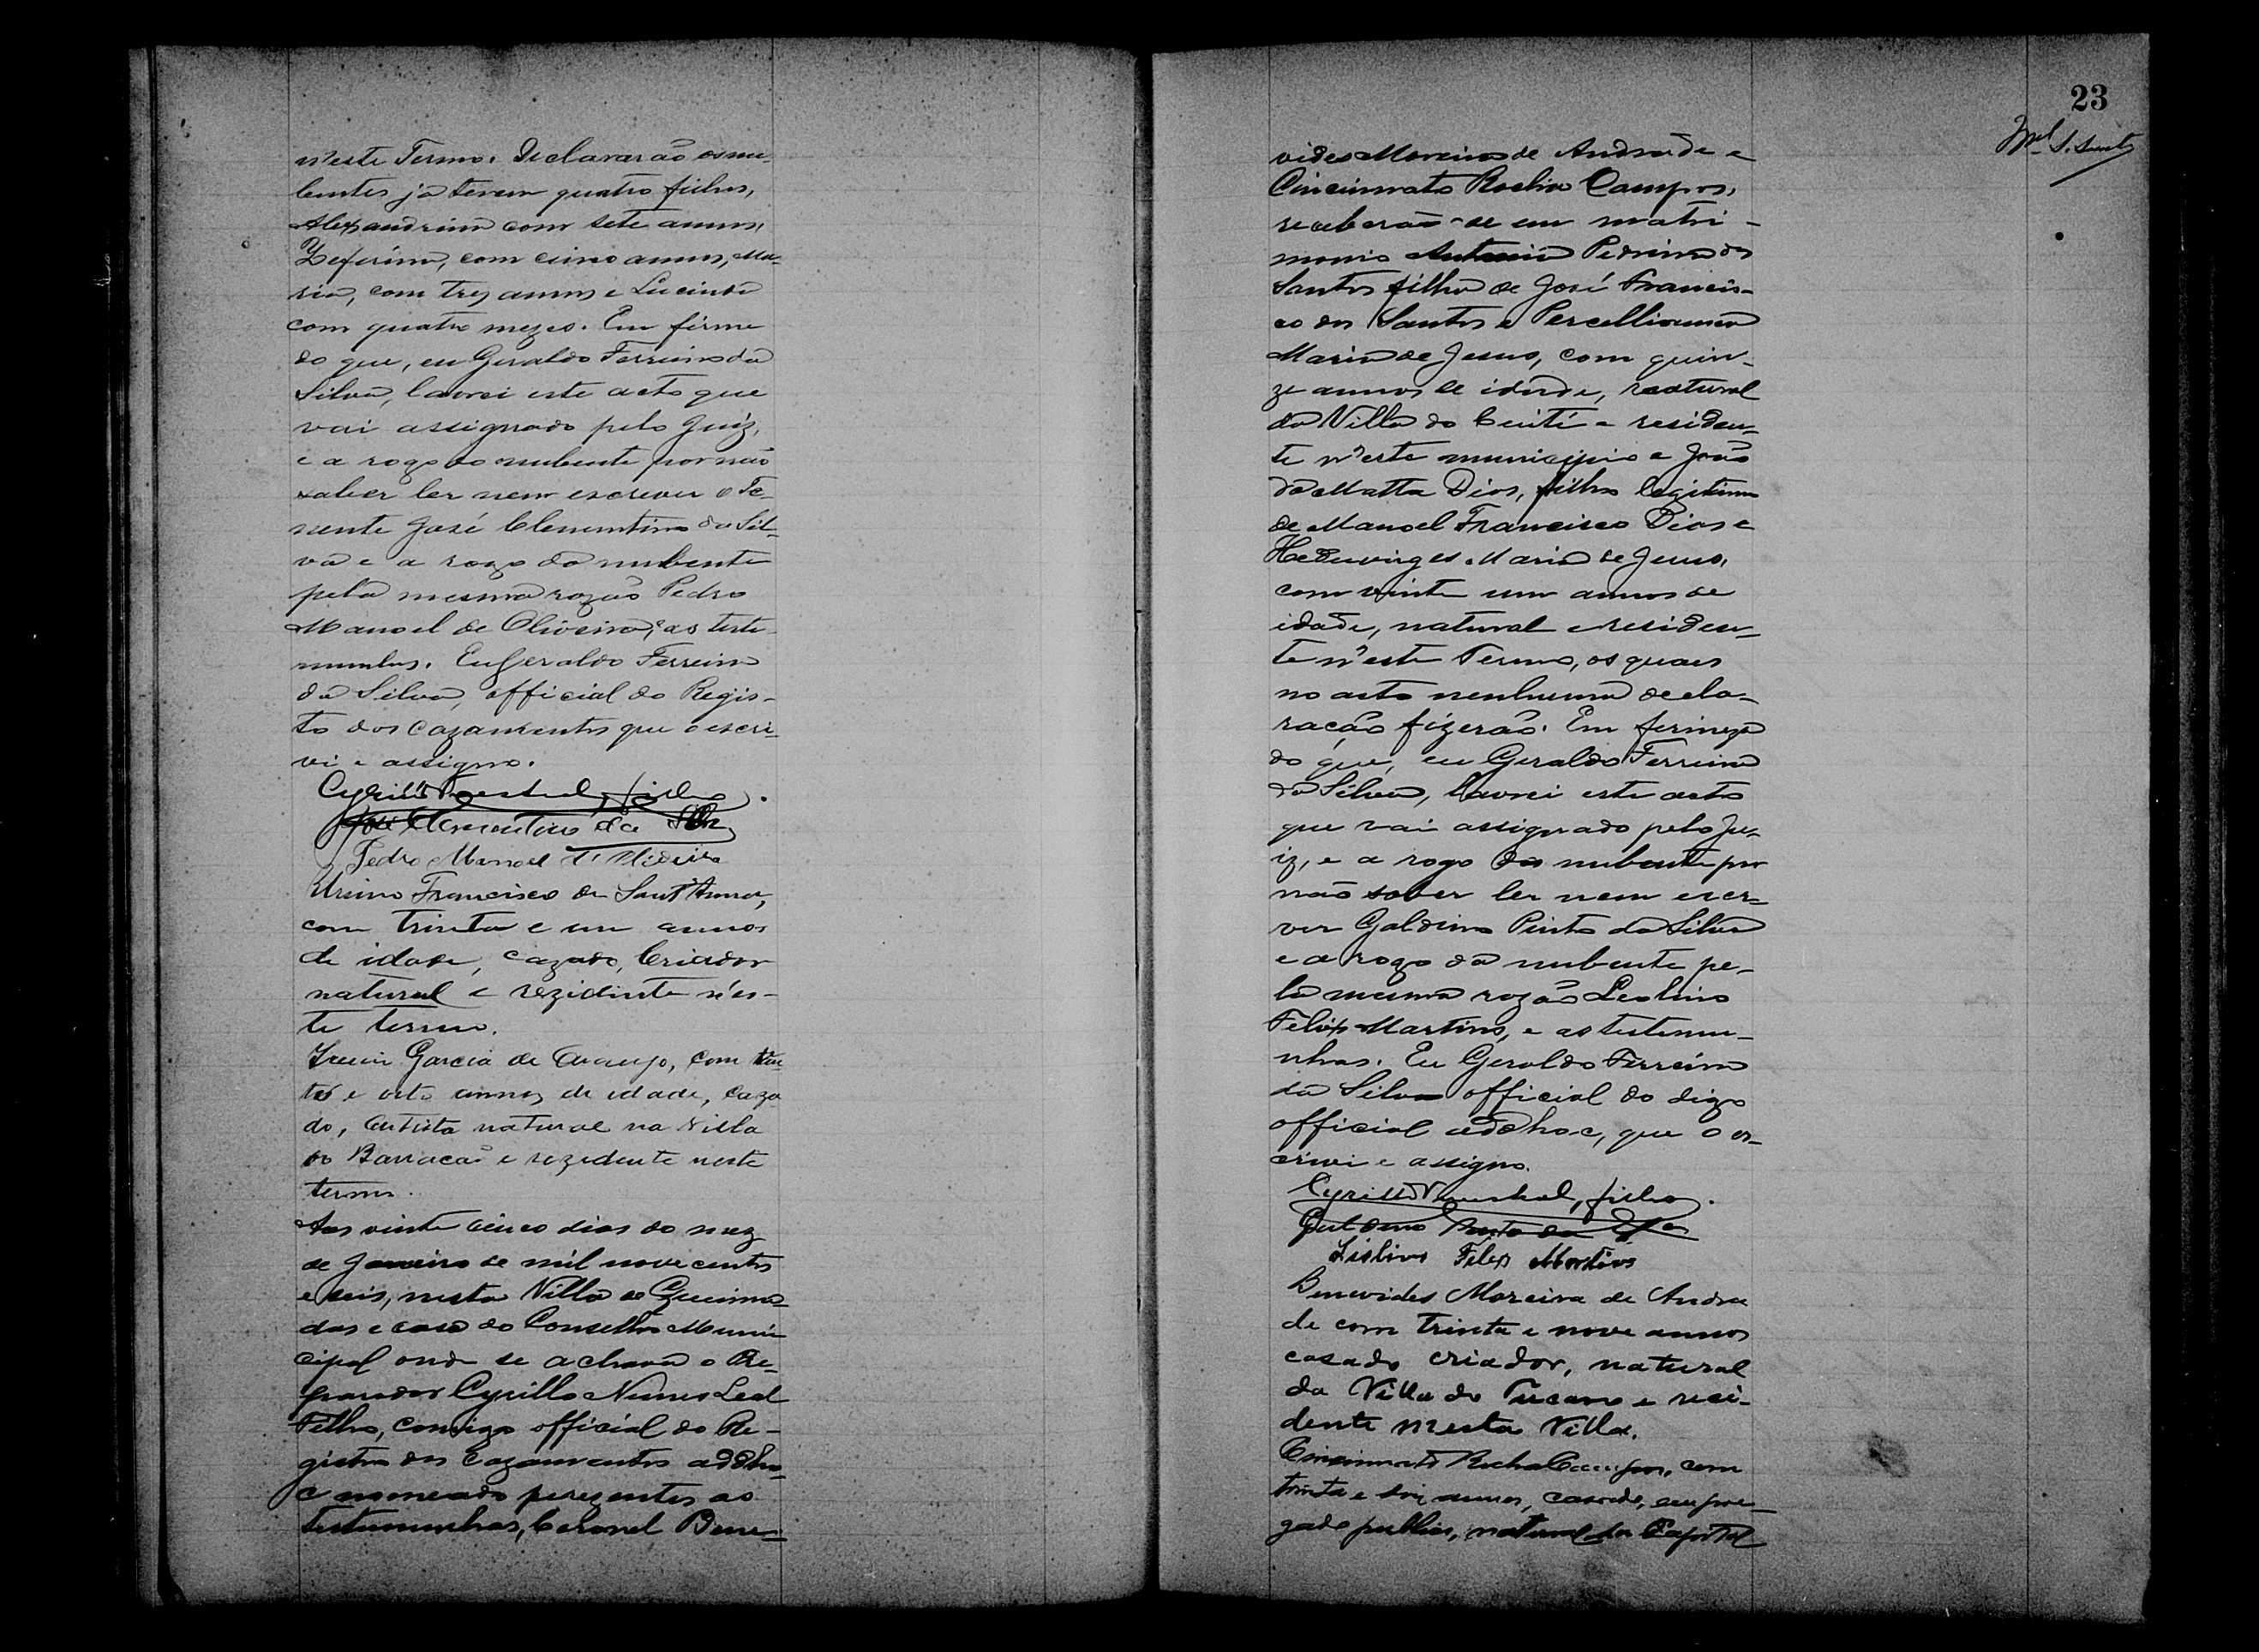 n'este Termo. Declararão os nu-
bentes já terem quatro filhos,
Alexandrina com sete annos,
Zeferina, com cinco annos, Ma-
ria, com trez annos e Lucinda
com quatro mezes. Em firme
do que, eu Geraldo Ferreira da
Silva, lavrei este acto que
vai assignado pelo Juiz,
e a rogo do nubente por não
saber ler nem escrever o Te-
nente José Clementino da Sil-
va e a rogo da nubente
pela mesma razão Pedro
Manoel de Oliveira, e as teste-
munhas. Eu Geraldo Ferreira
da Silva, official do Regis-
to dos Cazamentos que o escri-
vi e assigno.
Cyrillo Leal, filho.
José Clementino da Silva
Pedro Manoel d'Oliveira
Ursino Francisco de Sant'Anna,
com trinta e um annos
de idade, cazado, Criador
natural e rezidente n'es-
te termo.
Garcia de Araujo, com
e oito annos de idade, caza-
do, Artista natural na Villa
do Barracão e rezedente neste
termo.
Aos vinte cinco dias do mez
de Janeiro de mil nove centos
e seis, nesta Villa de Queima-
das e casa do Conselho Muni-
cipal onde se achava o Pre-
parador Cyrillo Nunes Leal
Filho, comigo official do Re-
gistro dos Cazamentos adho-
c nomeado prezentes as
testemunhas, Coronel Bene-
23
vides Moreira de Andrade e
Cincinnato Rocha Campos,
receberão-se em matri-
monio Antonia Pedrina dos
Santos filha de José Francis-
co dos Santos e Percelliana
Maria de Jesus, com quin-
ze annos de idade, natural
da Villa do Coité e residen-
te n'este municipio e João
da Matta Dias, filho legitimo
de Manoel Francisco Dias e
Hedewirges Maria de Jesus,
com vinte um annos de
idade, natural e residen-
te n'este Termo, os quaes
no acto nenhuma decla-
ração fizerão. Em firmeza
do que, eu Geraldo Ferreira
da Silva, lavrei este acto
que vai assignado pelo Ju-
iz, e a rogo do nubente por
não saber ler nem escre-
ver Galdino Pinto da Silva
e a rogo da nubente pe-
la mesma razão Leolino
Felix Martins, e as testemu-
nhas. Eu Geraldo Ferreira
da Silva official do digo
official adhoc, que o es-
crivi e assigno.
Cyrillo Leal, filho.
Galdino Pinto da Silva
Felix Martins
Benevides Moreira de Andra
de com trinta e nove annos
casado criador, natural
da Villa do Tucano e resi-
dente nesta Villa.
Cincinnato Rocha Campos, com
trinta e dois annos, casado, empre-
gado publico, natural da Capital